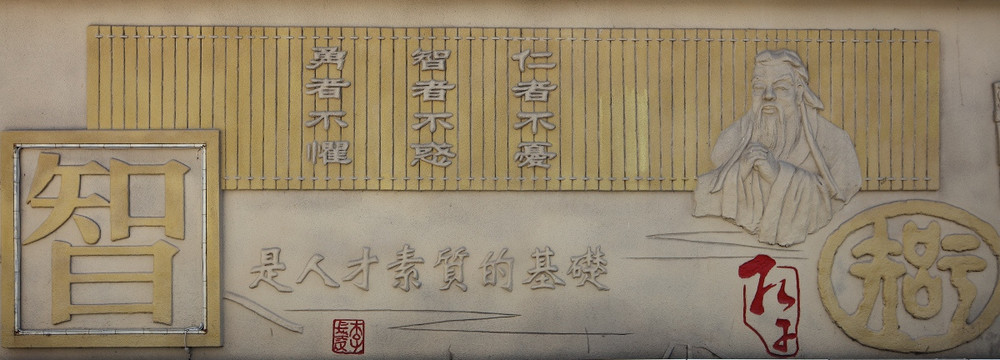 仁者不憂
智者不惑
勇者不懼
智
是人才素質的基礎
孔子